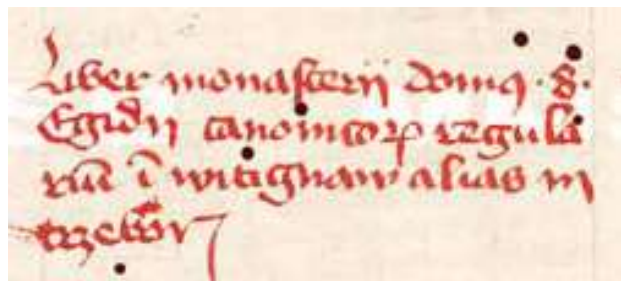 Liber monasterii domus · S ·
Egidii canonicorum regula
rium in witignaw alias in
trzebon